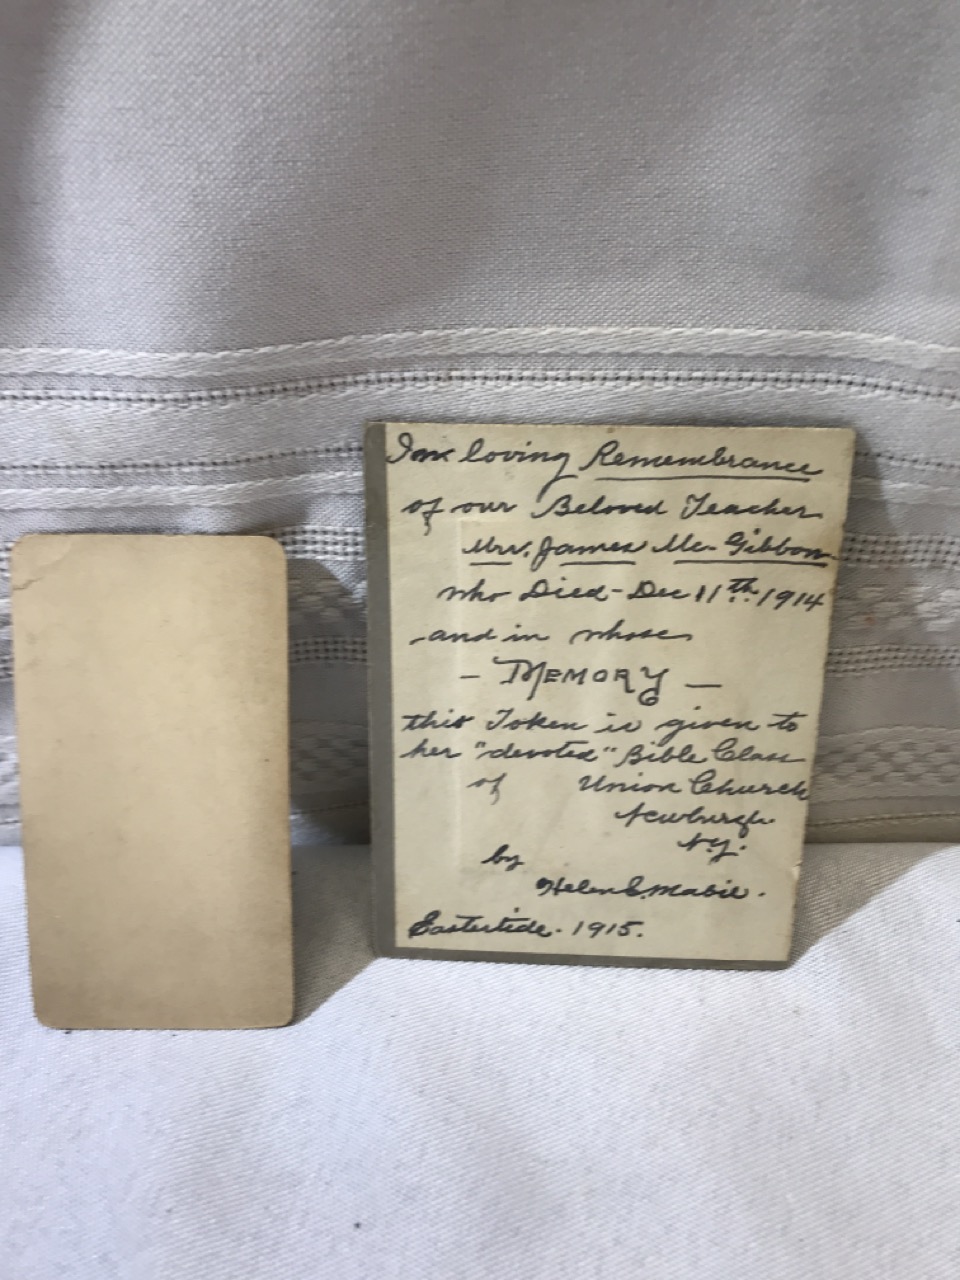 In loving Remembrance
of our Beloved Teacher
Mrs. James Mc-Gibbon-
who Died-Dec 11th 1914
and in whose
- MEMORY -
this Token is given to
her "devoted" Bible Class
of Union Church
Newburgh
N.Y.
by
Helen E. Mabie.
Eastertide- 1915.